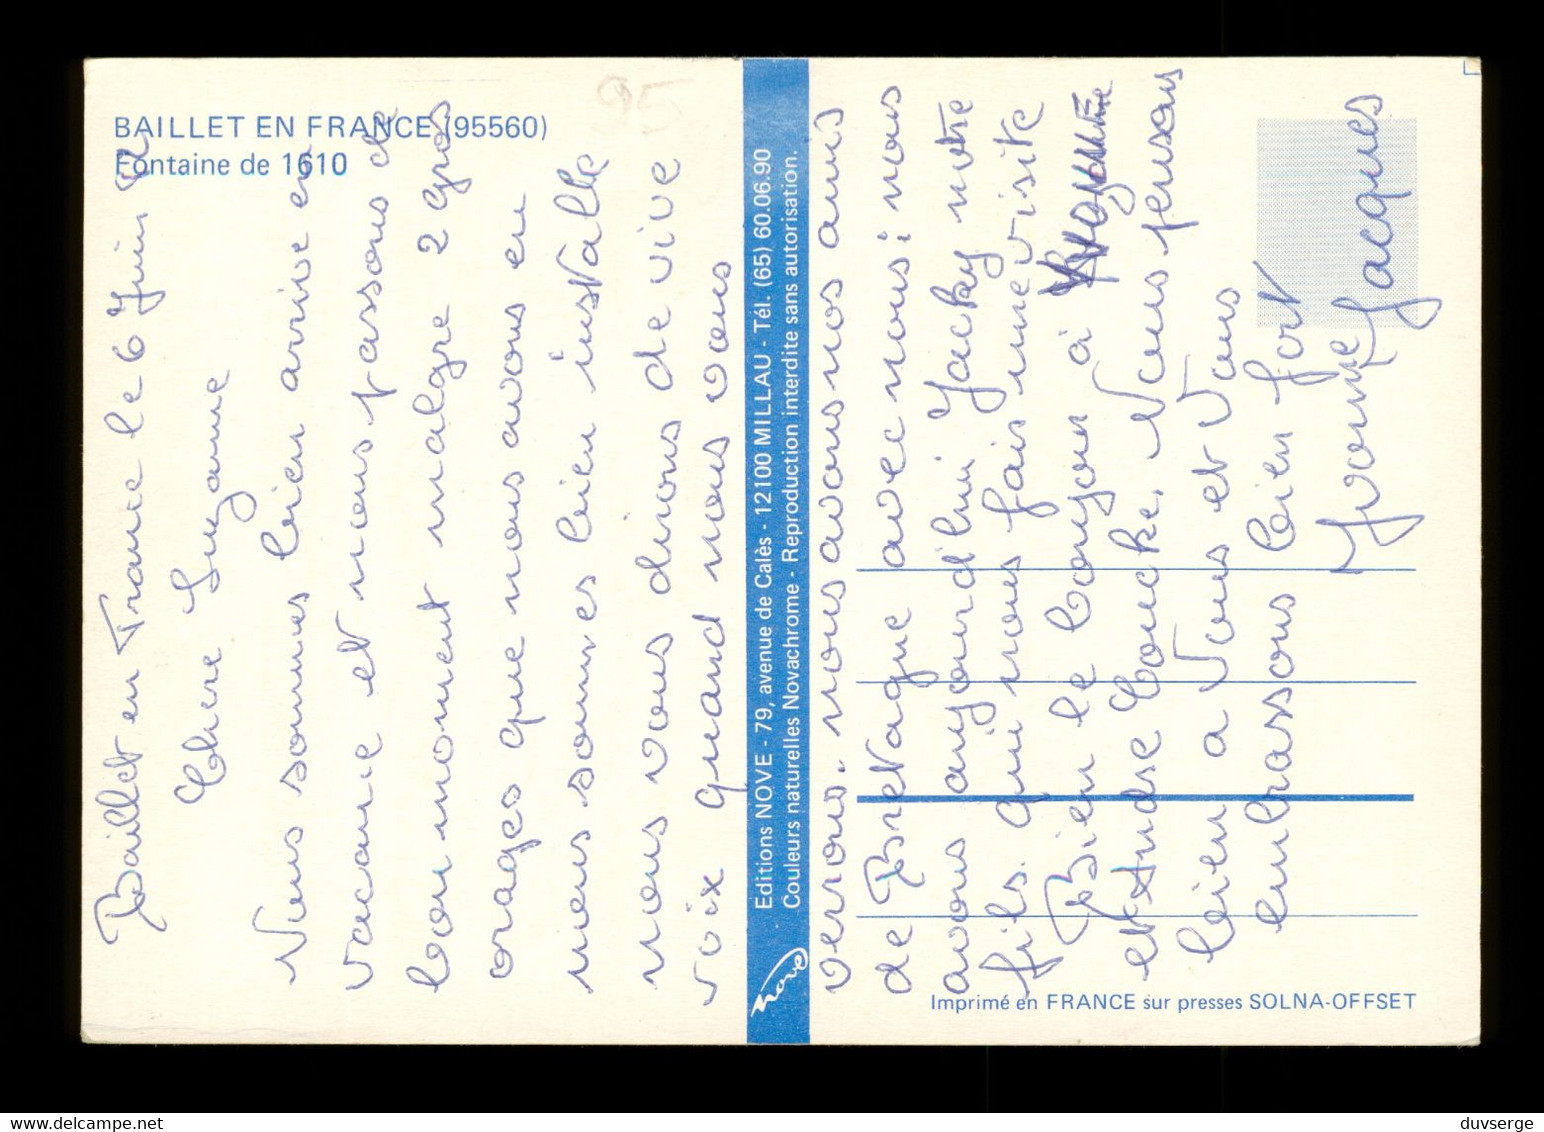 BAILLET EN FRANCE (95560)
Fontaine de 1610
95
Baillet en France le 6 Juin
Chere Suzanne
Nous sommes bien arrive en
vacance et nous passons de
bon moment malgre 2 gros
orages que nous avons eu
nous sommes bien installe
nous vous dirons de vive
voix quand nous vous
Editions NOVE - 79, avenue de Calès - 12100 MILLAU - Tél. (65) 60.06.90
Couleurs naturelles Novachrome - Reproduction interdite sans autorisation.
nove
verrons. nous avons nos amis
de Bretagne avec nous: nous
avons aujourd'hui Jacky notre
fils. qui nous fais une visite
Bien le bonjour à
et Andre Coucke. Nous pensons
bien a Vous et Vous
embrassons bien fort
Yvonne Jacques
Imprimé en FRANCE sur presses SOLNA-OFFSET
delcampe.net
duvserge